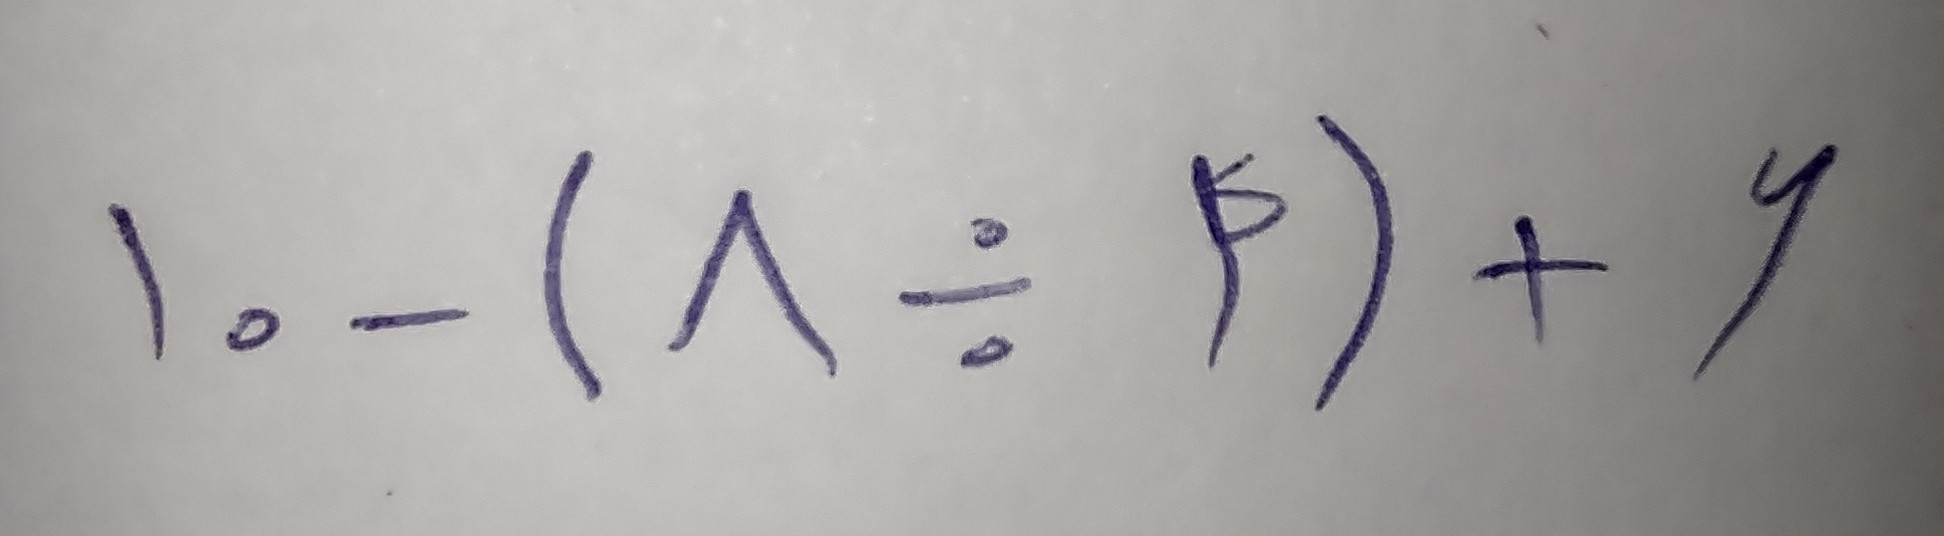 ۱۰ - (۸ ÷ ۴) + ۶